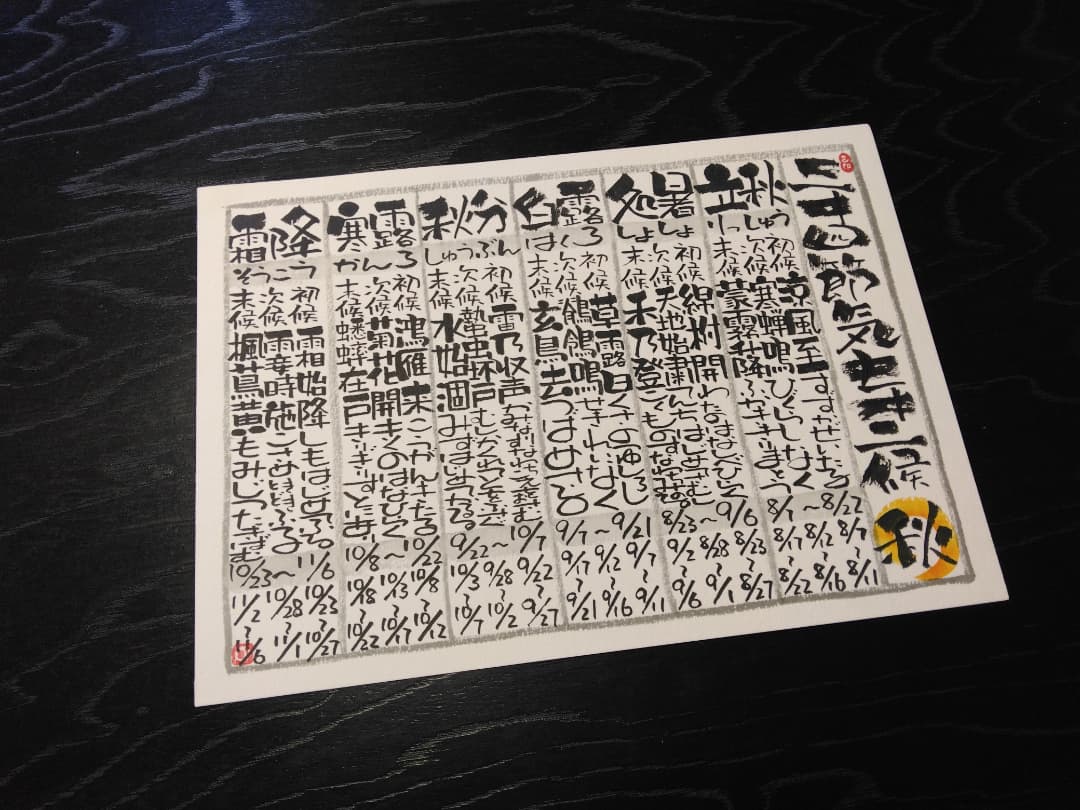 二十四節気七十二候
秋
立秋
りっしゅう
初候 涼風至 すずかぜいたる
次候 寒蝉鳴 ひぐらしなく
末候 蒙霧升降 ふかききりまとう
8/7～8/22
8/7～8/11
8/12～8/16
8/17～8/22
処暑
しょしょ
初候 綿柎開 わたのはなしべひらく
次候 天地始粛 てんちはじめてさむし
末候 禾乃登 こくものすなわちみのる
8/23～9/6
8/23～8/27
8/28～9/1
9/2～9/6
白露
はくろ
初候 草露白 くさのつゆしろし
次候 鶺鴒鳴 せきれいなく
末候 玄鳥去 つばめさる
9/7～9/21
9/7～9/11
9/12～9/16
9/17～9/21
秋分
しゅうぶん
初候 雷乃収声 かみなりすなわちこえをおさむ
次候 蟄虫坏戸 むしかくれてとをふさぐ
末候 水始涸 みずはじめてかるる
9/22～10/7
9/22～9/27
9/28～10/2
10/3～10/7
寒露
かんろ
初候 鴻雁来 こうがんきたる
次候 菊花開 きくのはなひらく
末候 蟋蟀在戸 きりぎりすとにあり
10/8～10/22
10/8～10/12
10/13～10/17
10/18～10/22
霜降
そうこう
初候 霜始降 しもはじめてふる
次候 霎時施 こさめときどきふる
末候 楓蔦黄 もみじつたきばむ
10/23～11/6
10/23～10/27
10/28～11/1
11/2～11/6